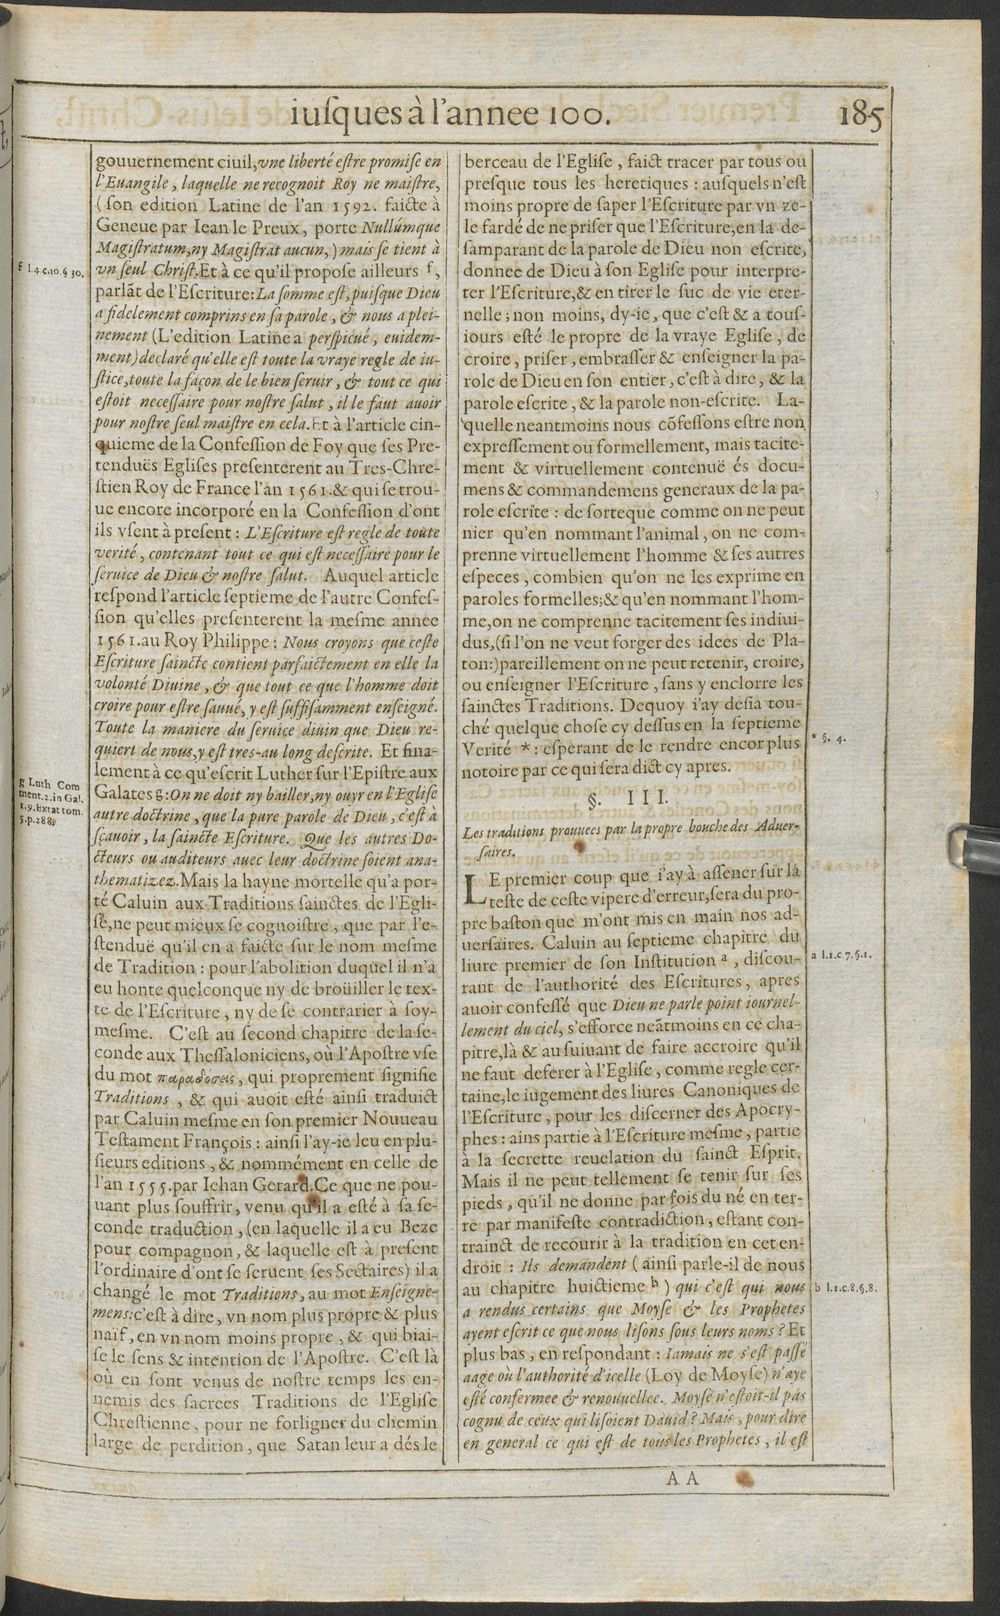 iuſques à l'annee 100. 185
gouuernement ciuil, vne liberté eſtre promiſe en
l'Euangile, laquelle ne recognoit Roy ne maiſtre,
(ſon edition Latine de l'an 1592. faicte à
Geneue par Iean le Preux, porte Nullúmque
Magiſtratum, ny Magiſtrat aucun,) mais ſe tient à
vn ſeul Chriſt. Et à ce qu'il propoſe ailleurs f,
parlāt de l'Eſcriture: La ſomme eſt, puiſque Dieu
a fidelement comprins en ſa parole, & nous a plei-
nement (L'edition Latine a perſpicuè, euidem-
ment) declaré qu'elle eſt toute la vraye regle de iu-
ſtice, toute la façon de le bien ſeruir, & tout ce qui
eſtoit neceſſaire pour noſtre ſalut, il le faut auoir
pour noſtre ſeul maiſtre en cela. Et à l'article cin-
quieme de la Confeſſion de Foy que ſes Pre-
tenduës Egliſes preſenterent au Tres-Chre-
ſtien Roy de France l'an 1561. & qui ſe trou-
ue encore incorporé en la Confeſſion d'ont
ils vſent à preſent: L'Eſcriture eſt regle de toute
verité, contenant tout ce qui eſt neceſſaire pour le
ſeruice de Dieu & noſtre ſalut. Auquel article
reſpond l'article ſeptieme de l'autre Confeſ-
ſion qu'elles preſenterent la meſme annee
1561. au Roy Philippe: Nous croyons que ceſte
Eſcriture ſaincte contient parfaictement en elle la
volonté Diuine, & que tout ce que l'homme doit
croire pour eſtre ſauué, y eſt ſuffiſamment enſeigné.
Toute la maniere du ſeruice diuin que Dieu re-
quiert de nous, y eſt tres-au long deſcrite. Et fina-
lement à ce qu'eſcrit Luther ſur l'Epiſtre aux
Galates g: On ne doit ny bailler, ny ouyr en l'Egliſe
autre doctrine, que la pure parole de Dieu, c'eſt à
ſçauoir, la ſaincte Eſcriture. Que les autres Do-
cteurs ou auditeurs auec leur doctrine ſoient ana-
thematizez. Mais la hayne mortelle qu'a por-
té Caluin aux Traditions ſainctes de l'Egli-
ſe, ne peut mieux ſe cognoiſtre, que par l'e-
ſtenduë qu'il en a faicte ſur le nom meſme
de Tradition: pour l'abolition duquel il n'a
eu honte quelconque ny de broüiller le tex-
te de l'Eſcriture, ny de ſe contrarier à ſoy-
meſme. C'eſt au ſecond chapitre de la ſe-
conde aux Theſſaloniciens, où l'Apoſtre vſe
du mot παραδόσεις, qui proprement ſignifie
Traditions, & qui auoit eſté ainſi traduict
par Caluin meſme en ſon premier Nouueau
Teſtament François: ainſi l'ay-ie leu en plu-
ſieurs editions, & nommément en celle de
l'an 1555. par Iehan Gerard. Ce que ne pou-
uant plus ſouffrir, venu qu'il a eſté à ſa ſe-
conde traduction, (en laquelle il a eu Beze
pour compagnon, & laquelle eſt à preſent
l'ordinaire d'ont ſe ſeruent ſes Sectaires) il a
changé le mot Traditions, au mot Enſeigne-
mens: c'eſt à dire, vn nom plus propre & plus
naïf, en vn nom moins propre, & qui biai-
ſe le ſens & intention de l'Apoſtre. C'eſt là
où en ſont venus de noſtre temps les en-
nemis des ſacrees Traditions de l'Egliſe
Chreſtienne, pour ne forligner du chemin
large de perdition, que Satan leur a dés le
f l.4.c.10.§ 30.
g Luth Com
ment.2.in Gal.
1.9. Extat tom.
5.p.288.
berceau de l'Egliſe, faict tracer par tous ou
preſque tous les heretiques: auſquels n'eſt
moins propre de ſaper l'Eſcriture par vn ze-
le fardé de ne priſer que l'Eſcriture, en la de-
ſamparant de la parole de Dieu non eſcrite,
donnee de Dieu à ſon Egliſe pour interpre-
ter l'Eſcriture, & en tirer le ſuc de vie eter-
nelle; non moins, dy-ie, que c'eſt & a touſ-
iours eſté le propre de la vraye Egliſe, de
croire, priſer, embraſſer & enſeigner la pa-
role de Dieu en ſon entier, c'eſt à dire, & la
parole eſcrite, & la parole non-eſcrite. La-
quelle neantmoins nous cōfeſſons eſtre non
expreſſement ou formellement, mais tacite-
ment & virtuellement contenuë és docu-
mens & commandemens generaux de la pa-
role eſcrite: de ſorte que comme on ne peut
nier qu'en nommant l'animal, on ne com-
prenne virtuellement l'homme & ſes autres
eſpeces, combien qu'on ne les exprime en
paroles formelles; & qu'en nommant l'hom-
me, on ne comprenne tacitement ſes indiui-
dus, (ſi l'on ne veut forger des idees de Pla-
ton:) pareillement on ne peut retenir, croire,
ou enſeigner l'Eſcriture, ſans y enclorre les
ſainctes Traditions. Dequoy i'ay deſia tou-
ché quelque choſe cy deſſus en la ſeptieme
Verité *: eſperant de le rendre encor plus
notoire par ce qui ſera dict cy apres.
§. III.
Les traditions prouuees par la propre bouche des Aduer-
ſaires.
LE premier coup que i'ay à aſſener ſur la
teſte de ceſte vipere d'erreur, ſera du pro-
pre baſton que m'ont mis en main nos ad-
uerſaires. Caluin au ſeptieme chapitre du
liure premier de ſon Inſtitution a, diſcou-
rant de l'authorité des Eſcritures, apres
auoir confeſſé que Dieu ne parle point iournel-
lement du ciel, s'efforce neātmoins en ce cha-
pitre, là & au ſuiuant de faire accroire qu'il
ne faut deferer à l'Egliſe, comme regle cer-
taine, le iugement des liures Canoniques de
l'Eſcriture, pour les diſcerner des Apocry-
phes: ains partie à l'Eſcriture meſme, partie
à la ſecrette reuelation du ſainct Eſprit.
Mais il ne peut tellement ſe tenir ſur ſes
pieds, qu'il ne donne par fois du né en ter-
re par manifeſte contradiction, eſtant con-
trainct de recourir à la tradition en cet en-
droit: Ils demandent (ainſi parle-il de nous
au chapitre huictieme b) qui c'eſt qui nous
a rendus certains que Moyſe & les Prophetes
ayent eſcrit ce que nous liſons ſous leurs noms? Et
plus bas, en reſpondant: Iamais ne s'eſt paſſé
aage où l'authorité d'icelle (Loy de Moyſe) n'aye
eſté confermee & renouuellee. Moyſe n'eſtoit-il pas
cognu de ceux qui liſoient Dauid? Mais, pour dire
en general ce qui eſt de tous les Prophetes, il eſt
* §. 4.
a l.1.c 7.§.1.
b l.1.c.8.§.8.
A A